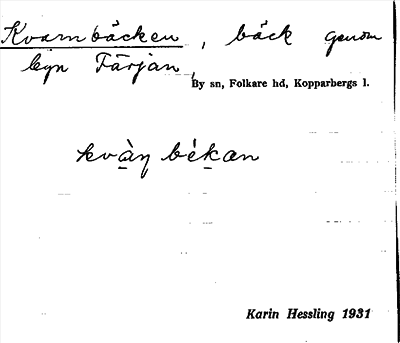 Kvarnbäcken, bäck genom
byn Färjan,
By sn, Folkare hd, Kopparbergs l.
kvàṇ bèkan
Karin Hessling 1931